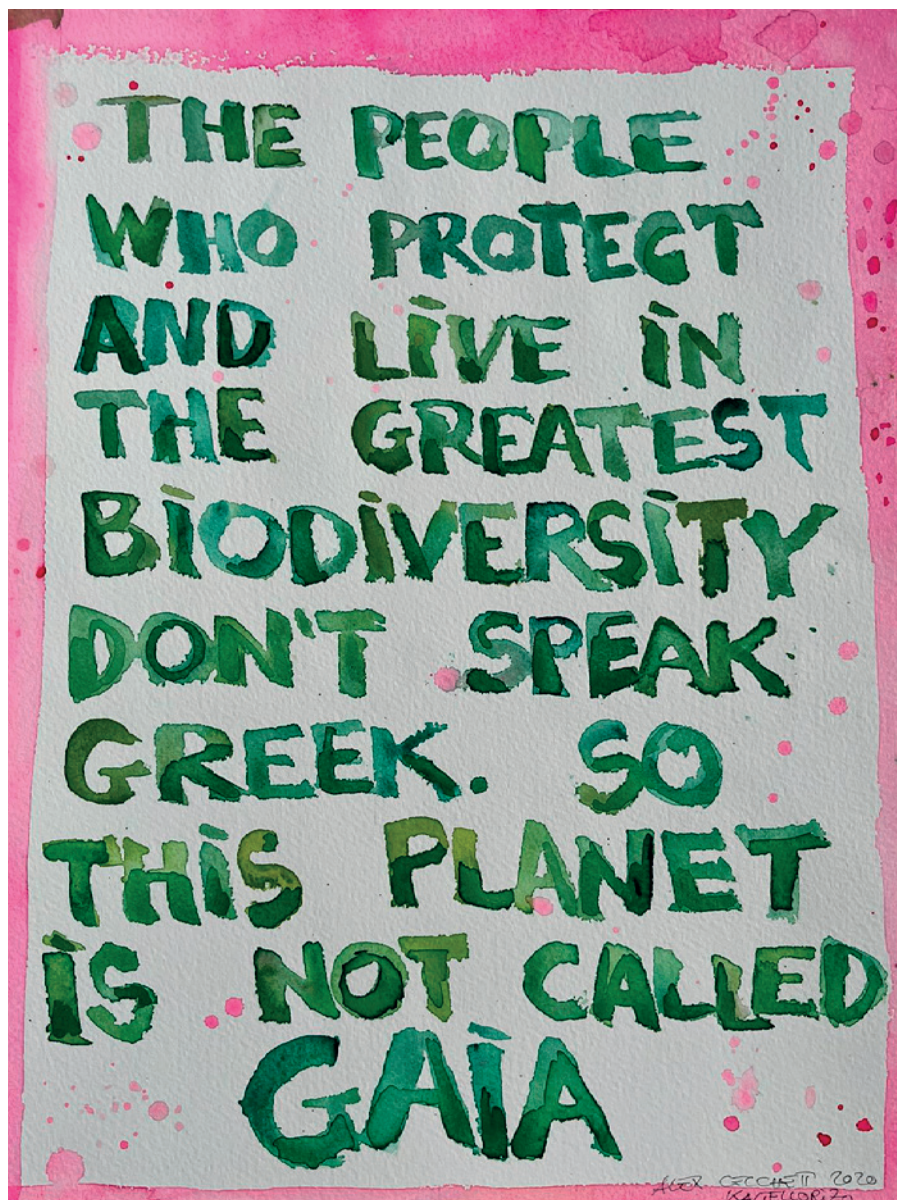 THE PEOPLE
WHO PROTECT
AND LIVE IN
THE GREATEST
BIODIVERSITY
DON'T SPEAK
GREEK. SO
THIS PLANET
IS NOT CALLED
GAIA
ALEX CECCHETTI 2020